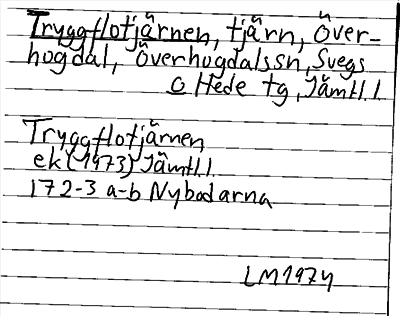 Tryggflotjärnen, tjärn, Över-
hogdal, Överhogdals sn, Svegs
o Hede tg, Jämtl. l.
Tryggflotjärnen
ek (1973) Jämtl. l.
172-3 a-b Nybodarna
LM 1974